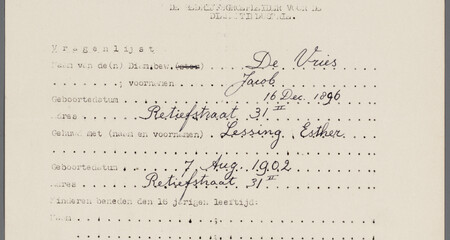 V r a g e n l i j s t
Naam van de(n) Diam.bew. (ster) De Vries
. . . . . . ; voornamen . . . . . Jacob
Geboortedatum . . . . 16 Dec. 1896
Adres . . . Retiefstraat 31 II
Gehuwd met (naam en voornamen) Lessing, Esther.
Geboortedatum . . . 7 Aug. 1902
Adres . . . Retiefstraat 31 II
Kinderen beneden den 16 jarigen leeftijd:
Naam